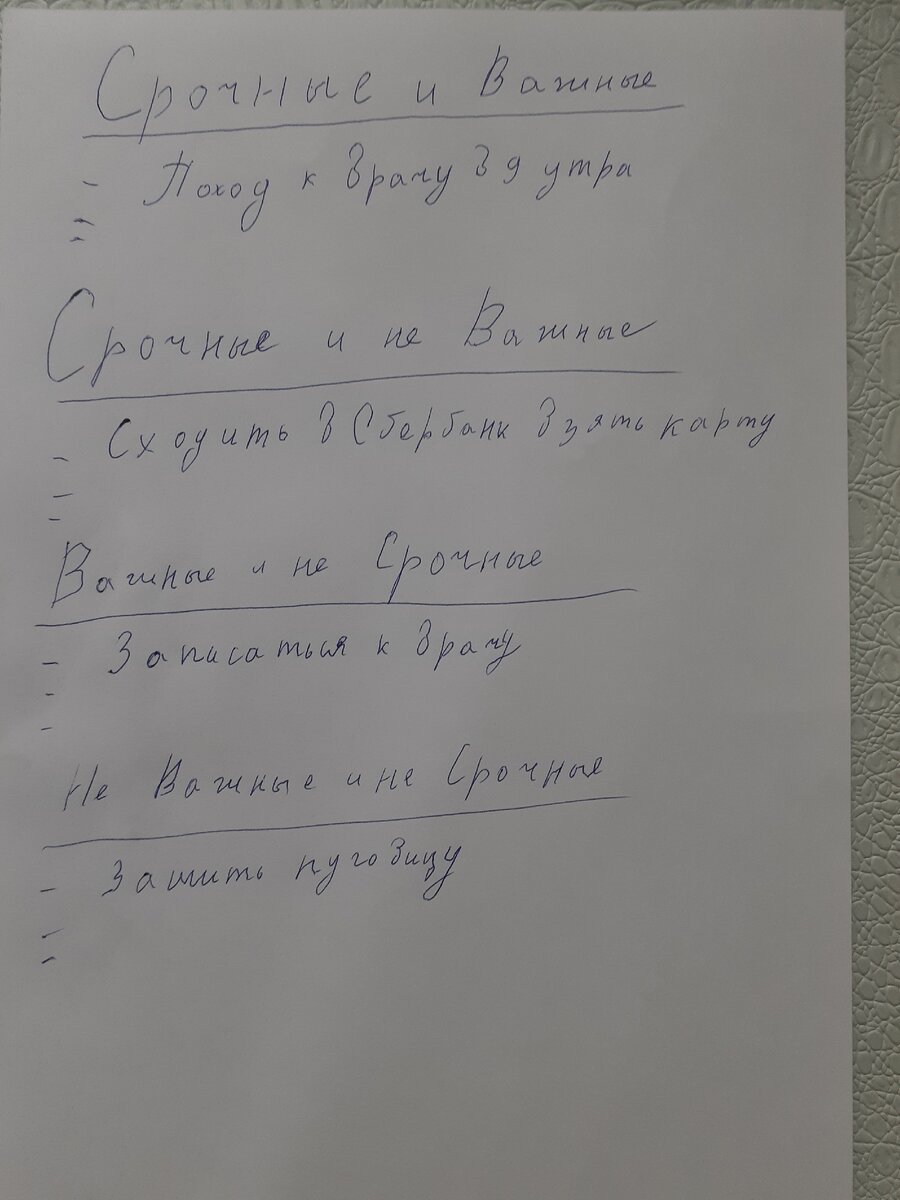 Срочные и Важные
- Поход к врачу в 9 утра
-
-
Срочные и не Важные
- Сходить в Сбербанк взять карту
-
-
Важные и не Срочные
- Записаться к врачу
-
-
Не Важные и не Срочные
- Зашить пуговицу
-
-